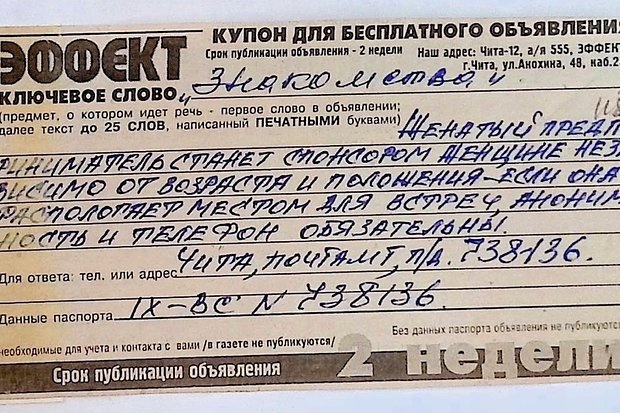 ЭФФЕКТ
КУПОН ДЛЯ БЕСПЛАТНОГО ОБЪЯВЛЕНИЯ
Срок публикации объявления - 2 недели
Наш адрес: Чита-12, а/я 555, ЭФФЕКТ
г.Чита, ул.Анохина, 48, каб.2
КЛЮЧЕВОЕ СЛОВО „Знакомства"
(предмет, о котором идет речь - первое слово в объявлении;
далее текст до 25 СЛОВ, написанный ПЕЧАТНЫМИ буквами)
ЖЕНАТЫЙ ПРЕДП
РИНИМАТЕЛЬ СТАНЕТ СПОНСОРОМ ЖЕНЩИНЕ НЕЗ
ВИСИМО ОТ ВОЗРАСТА И ПОЛОЖЕНИЯ-ЕСЛИ ОНА
РАСПОЛОГАЕТ МЕСТОМ ДЛЯ ВСТРЕЧ, АНОНИМ
НОСТЬ И ТЕЛЕФОН ОБЯЗАТЕЛЬНЫ.
Для ответа: тел. или адрес ЧИТА, ПОЧТАМТ, П/Д. 738136.
Данные паспорта IX-ВС N 738136.
Без данных паспорта объявления не публикуются
необходимые для учета и контакта с вами /в газете не публикуются/
Срок публикации объявления 2 недели